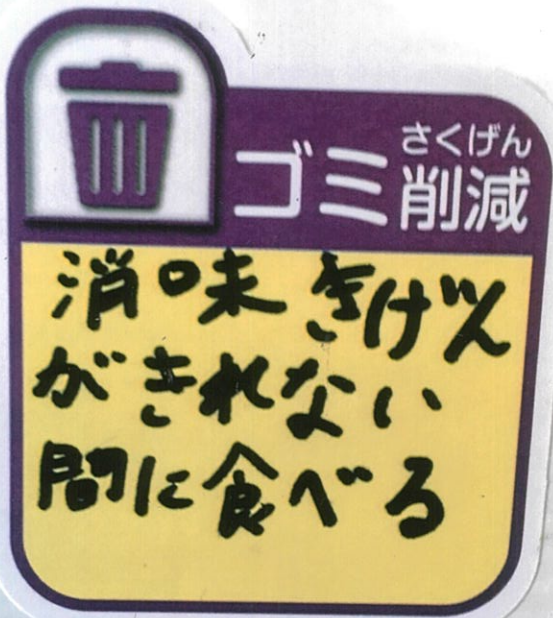 さくげん
ゴミ削減
消味きげん
がきれない
間に食べる